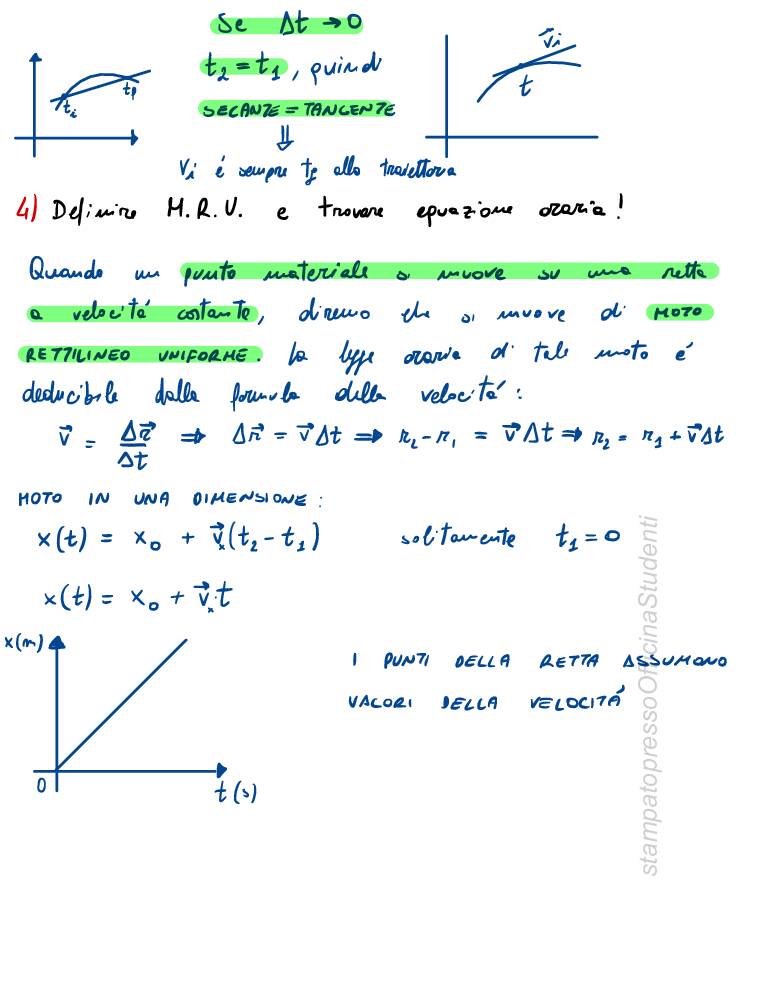 Se Δt → 0
t₂ = t₁, quindi
SECANTE = TANGENTE
⇓
Vi é sempre tg alla traiettoria
ti
tf
v⃗i
t
4) Definire M.R.U. e trovare equazione oraria!
Quando un punto materiale si muove su una retta
a velocitá costante, diremo che si muove di MOTO
RETTILINEO UNIFORME. La legge oraria di tale moto é
deducibile dalla formula della velocitá:
v⃗ = Δr⃗/Δt ⇒ Δr⃗ = v⃗Δt ⇒ r₂-r₁ = v⃗Δt ⇒ r₂ = r₁ + v⃗Δt
MOTO IN UNA DIMENSIONE:
x(t) = x₀ + v⃗ₓ(t₂ - t₁) solitamente t₁ = 0
x(t) = x₀ + v⃗ₓt
x(m)
I PUNTI DELLA RETTA ASSUMONO
VALORI DELLA VELOCITÁ
0
t(s)
stampatopressoOfficinaStudenti